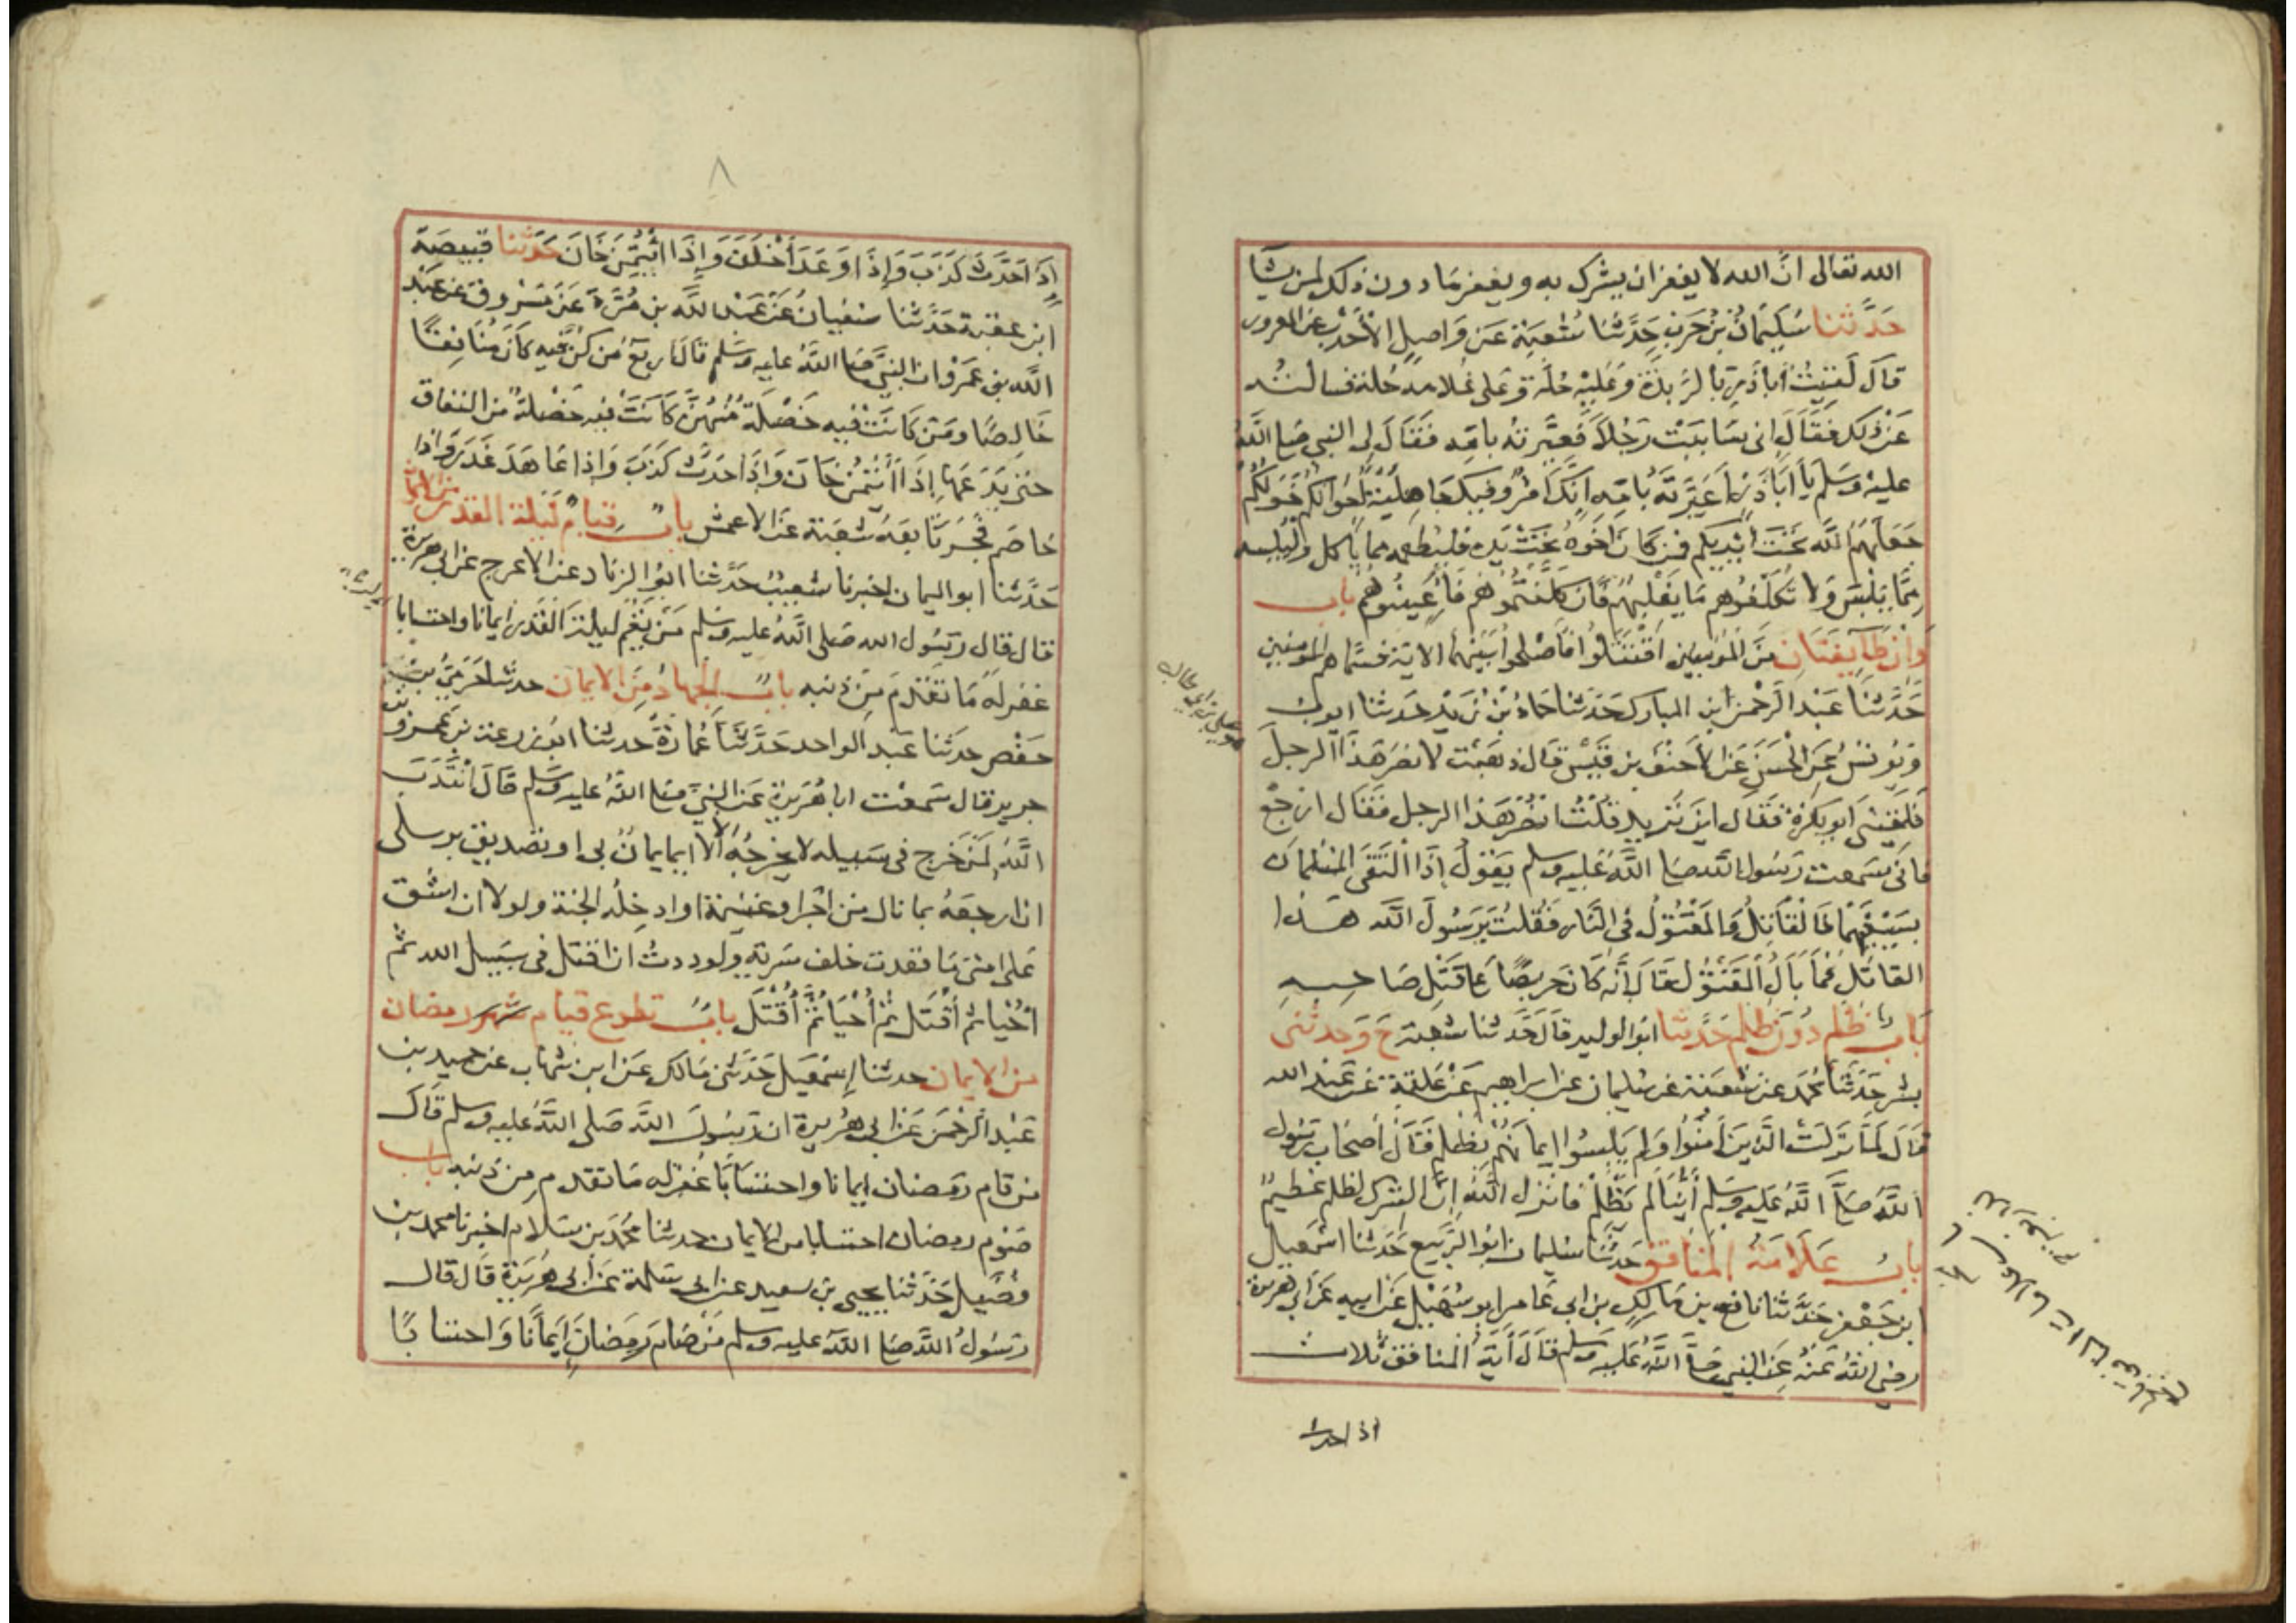 الله تعالى ان الله لا يغفر ان يشرك به ويغفر ما دون ذلك لمن يشا
حدثنا سليمان بن حرب حدثنا شعبة عن واصل الأحدب عن المعرور
قال لقيت أبا ذر بالربذة وعليه حلة وعلى غلامه حلة فسالته
عن ذلك فقال اني ساببت رجلا فعيرته بامه فقال لي النبي صلى الله
عليه وسلم يا أبا ذر أعيرته بامه انك امرؤ فيك جاهلية اخوانكم خولكم
جعلهم الله تحت ايديكم فمن كان اخوه تحت يده فليطعمه مما ياكل وليلبسه
مما يلبس ولا تكلفوهم ما يغلبهم فان كلفتموهم فأعينوهم باب
وان طايفتان من المؤمنين اقتتلوا فأصلحوا بينهما الاية فسماهم المومنين
حدثنا عبد الرحمن ابن المبارك حدثنا حماد بن زيد حدثنا ايوب
ويونس عن الحسن عن الأحنف بن قيس قال ذهبت لانصر هذا الرجل
فلقيني ابو بكرة فقال اين تريد قلت انصر هذا الرجل فقال ارجع
فاني سمعت رسول الله صلى الله عليه وسلم يقول إذا التقى المسلمان
بسيفهما فالقاتل والمقتول في النار فقلت يرسول الله هذا
القاتل فما بال المقتول قال إنه كان حريصا على قتل صاحبه
باب ظلم دون ظلم حدثنا ابو الوليد قال حدثنا شعبة ح وحدثني
بشر حدثنا محمد عن شعبة عن سليمان عن ابراهيم عن علقمة عن عبد الله
قال لما نزلت الذين آمنوا ولم يلبسوا إيمانهم بظلم قال أصحاب رسول
الله صلى الله عليه وسلم أينا لم يظلم فانزل الله إن الشرك لظلم عظيم
باب علامة المنافق حدثنا سليمان ابو الربيع حدثنا اسمعيل
ابن جعفر حدثنا نافع بن مالك بن ابي عامر ابو سهيل عن ابيه عن أبي هريرة
رضي الله عنه عن النبي صلى الله عليه وسلم قال آية المنافق ثلاث
اذا حدث
٨
إذا حدث كذب وإذا وعد أخلف وإذا ائتمن خان حدثنا قبيصة
ابن عقبة حدثنا سفيان عن عبد الله بن مرة عن مسروق عن عبد
الله بن عمرو ان النبي صلى الله عليه وسلم قال اربع من كن فيه كان منافقا
خالصا ومن كانت فيه خصلة منهن كانت فيه خصلة من النفاق
حتى يدعها إذا ائتمن خان وإذا حدث كذب وإذا عاهد غدر واذا
خاصم فجر تابعه شعبة عن الاعمش باب قيام ليلة القدر من الايمان
حدثنا ابو اليمان اخبرنا شعيب حدثنا ابو الزناد عن الاعرج عن ابي هريرة
قال قال رسول الله صلى الله عليه وسلم من يقم ليلة القدر ايمانا واحتسابا
غفر له ما تقدم من ذنبه باب الجهاد من الايمان حدثنا حرمي بن
حفص حدثنا عبد الواحد حدثنا عمارة حدثنا ابو زرعة بن عمرو بن
جرير قال سمعت ابا هريرة عن النبي صلى الله عليه وسلم قال انتدب
الله لمن خرج في سبيله لا يخرجه الا ايمان بي او تصديق برسلي
ان ارجعه بما نال من اجر او غنيمة او ادخله الجنة ولولا ان اشق
على امتي ما قعدت خلف سرية ولوددت ان اقتل في سبيل الله ثم
أحيا ثم أقتل ثم أحيا ثم أقتل باب تطوع قيام شهر رمضان
من الايمان حدثنا إسمعيل حدثني مالك عن ابن شهاب عن حميد بن
عبد الرحمن عن ابي هريرة ان رسول الله صلى الله عليه وسلم قال
من قام رمضان ايمانا واحتسابا غفر له ما تقدم من ذنبه باب
صوم رمضان احتسابا من الايمان حدثنا محمد بن سلام اخبرنا محمد بن
فضيل حدثنا يحيى بن سعيد عن ابي سلمة عن ابي هريرة قال قال
رسول الله صلى الله عليه وسلم من صام رمضان إيمانا واحتسابا